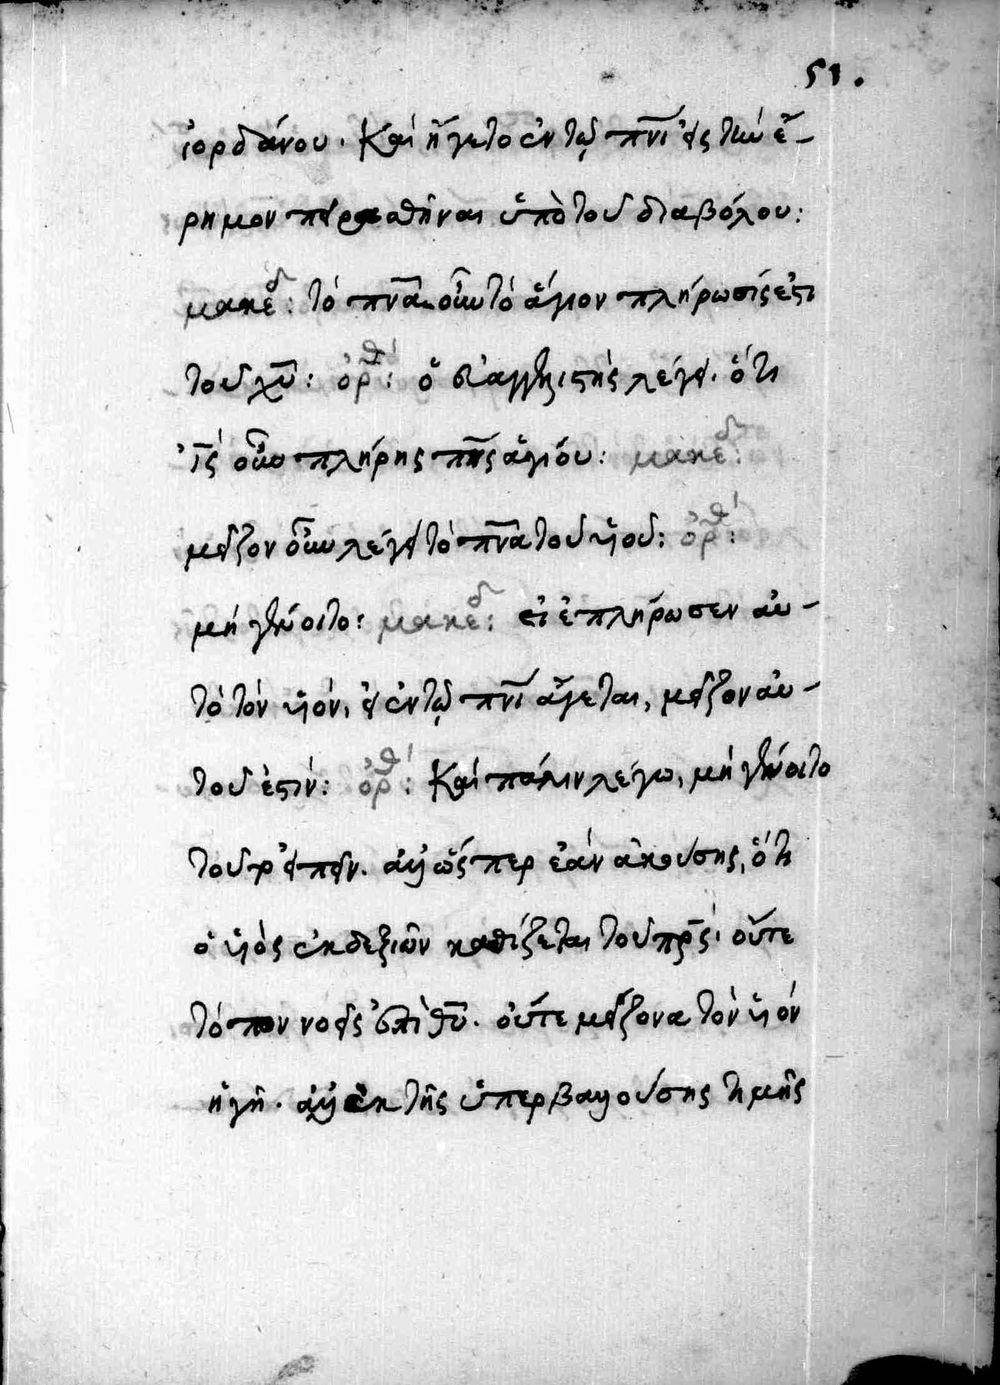 51.
ἰορδάνου. Καὶ ἤγετο ἐν τῷ πνι εἰς τὴν ἔ-
ρημον πειρασθῆναι ὑπὸ τοῦ διαβόλου:
μακεδ: τὸ πνα οὖν τὸ ἅγιον πλήρωσίς ἐστι
τοῦ χυ: ὀρθ: ὁ εὐαγγελιστὴς λέγει. ὅτι
ις οὖν πλήρης πνς ἁγίου: μακεδ:
μεῖζον οὖν λέγει τὸ πνα τοῦ υἱοῦ: ὀρθ:
μὴ γένοιτο: μακεδ: εἰ ἐπλήρωσεν αὐ-
τὸ τὸν υἱόν, ἐν τῷ πνι ἄγεται, μεῖζον αὐ-
τοῦ ἐστίν: ὀρθ: Καὶ πάλιν λέγω, μὴ γένοιτο
τοῦτο εἰπεῖν. ἀλλ' ὥσπερ ἐὰν ἀκούσῃς, ὅτι
ὁ υἱὸς ἐκ δεξιῶν καθίζεται τοῦ πρς· οὔτε
τόπον νοεῖς ἐπὶ θυ. οὔτε μείζονα τὸν υἱὸν
ἡγῇ. ἀλλ' ἐκ τῆς ὑπερβαλλούσης τιμῆς